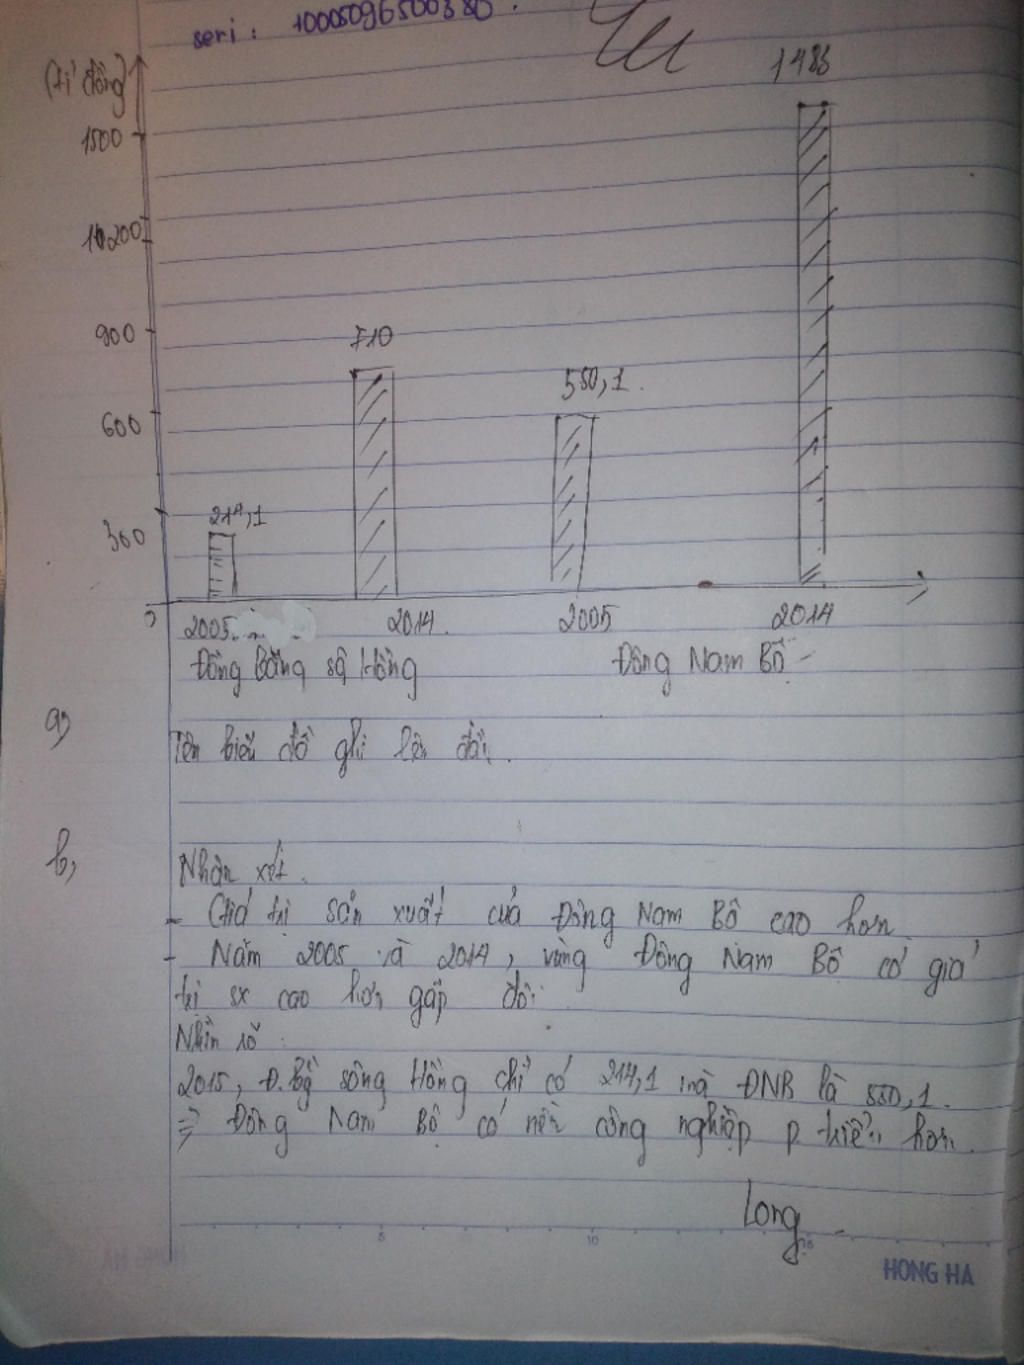 seri: 1000509650038D
(tỉ đồng)
1486
1500
1200
900
710
550,1.
600
214,1
300
0
2005. 2014. 2005 2014
Đồng Bằng sộ Hồng Đông Nam Bộ
a,
Tên biểu đồ ghi lên đầu.
b,
Nhận xét.
- Giá trị sản xuất của Đông Nam Bộ cao hơn
- Năm 2005 và 2014, vùng Đông Nam Bộ có giá
trị sx cao hơn gấp đôi
Nhìn rõ:
2015, Đ.bg sông Hồng chỉ có 214,1 mà ĐNB là 550,1.
=> Đông Nam Bộ có nền công nghiệp p triển hơn.
Long
5 10 15
HONG HA